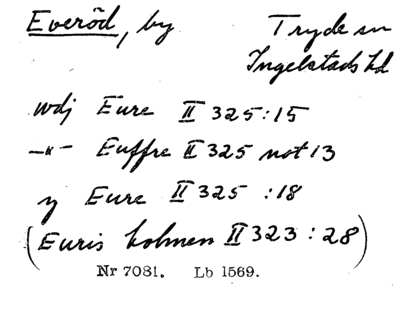 Everöd, by Tryde sn
Ingelstads hd
wdj Eure II 325:15
-"- Euffre II 325 not 13
y Eure II 325 :18
(Euris holmen II 323:28)
Nr 7081. Lb 1569.